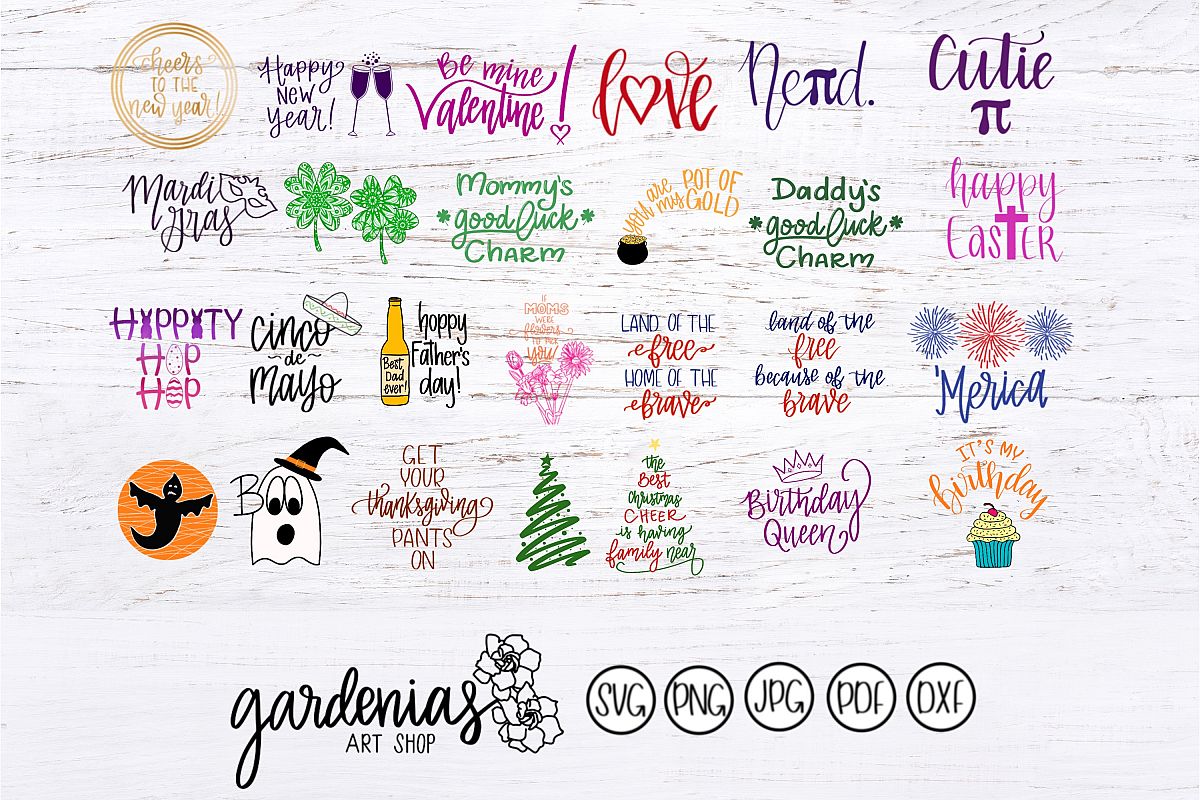 cheers
TO THE
new year!
Happy
NEW
Year!
Be mine
Valentine!
love
Neπd.
Cutie
π
Mardi
Gras
Mommy's
good luck
CHARM
you are
my
POT OF
GOLD
Daddy's
good luck
CHARM
happy
EaSTER
HIPPITY
HOP
HOP
cinco
~de~
mayo
Best
Dad
ever!
hoppy
Father's
day!
IF
MOMS
WERE
flowers
I'D PICK
YOU
LAND OF THE
free
HOME OF THE
brave
land of the
free
because of the
brave
'Merica
BOO
GET
YOUR
thanksgiving
PANTS
ON
the
Best
Christmas
CHEER
is having
family near
Birthday
Queen
IT'S MY
birthday
gardenias
ART SHOP
SVG
PNG
JPG
PDF
DXF